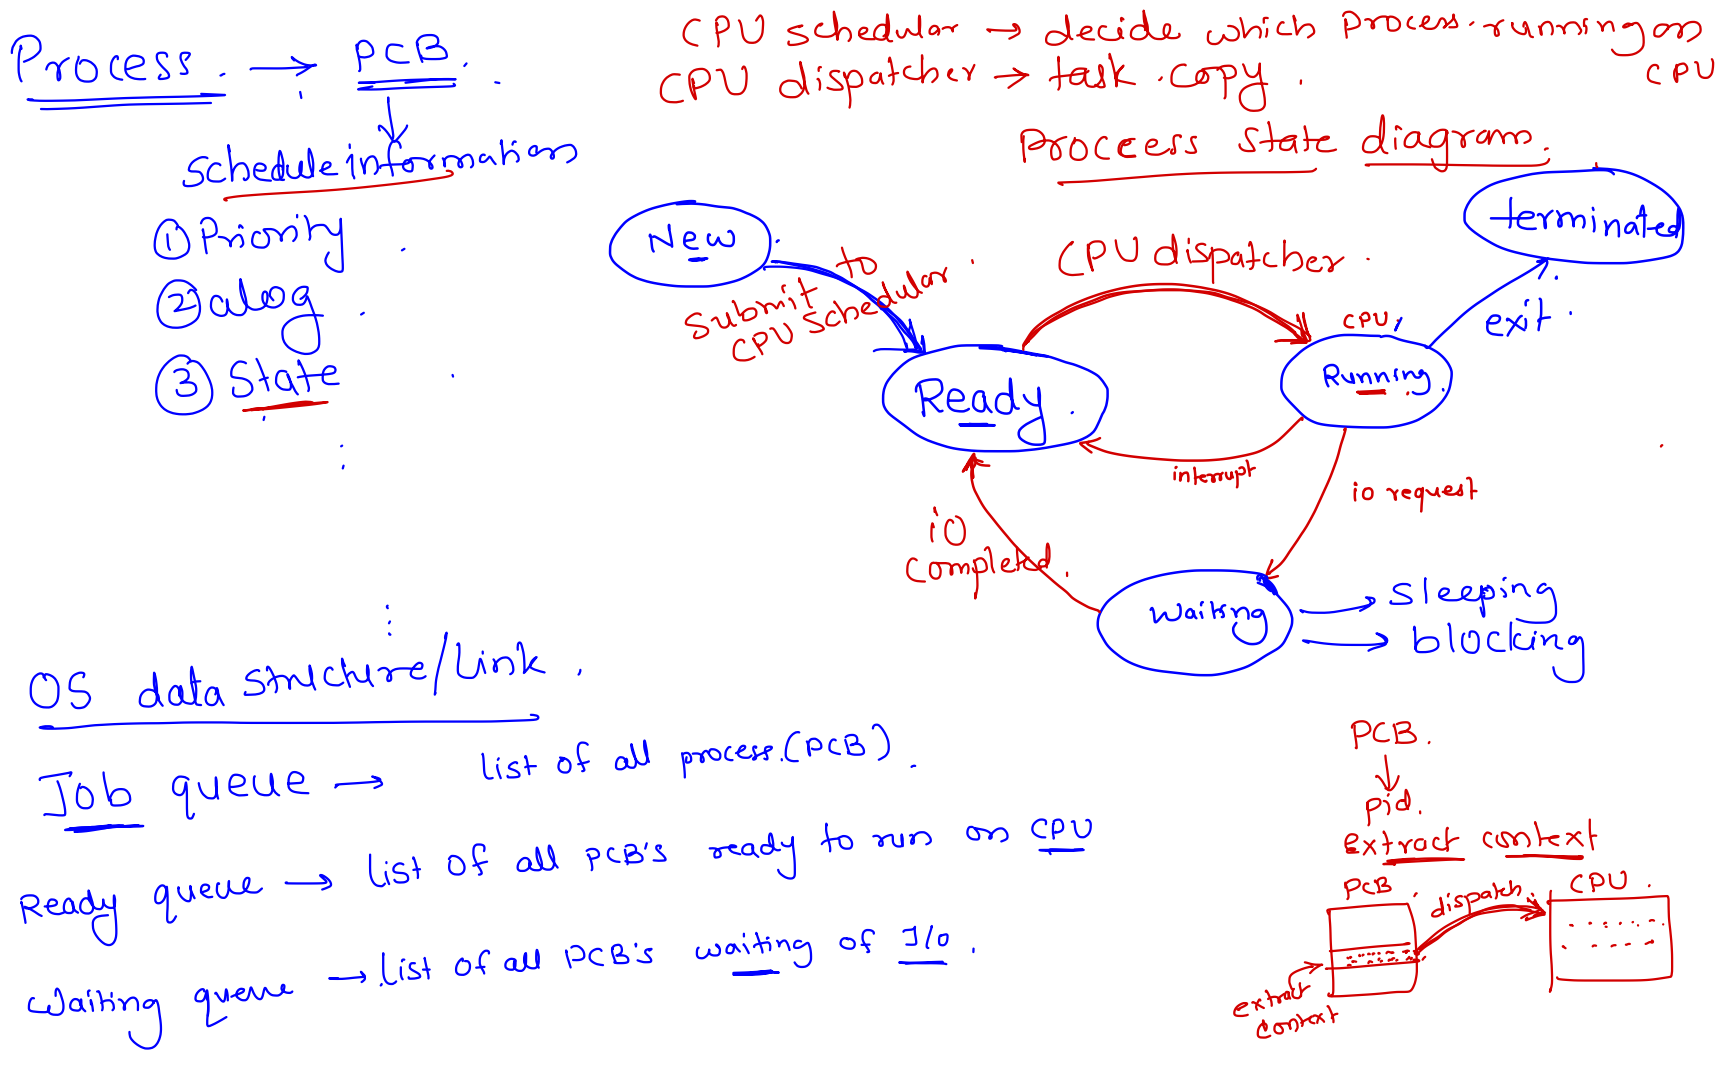 Process. → PCB.
schedule information
① Priority
② alog
③ State
CPU schedular → decide which process running on
CPU
CPU dispatcher → task copy.
Proceess state diagram.
New
Submit to
CPU schedular
Ready.
CPU dispatcher
CPU
Running.
terminated
exit.
interrupt
io request
io
completed.
Waiting
→ sleeping
→ blocking
OS data structure/Link.
Job queue → list of all process.(PCB).
Ready queue → list of all PCB's ready to run on CPU
Waiting queue → list of all PCB's waiting of I/o.
PCB.
↓
pid.
extract context
PCB
dispatch.
CPU.
extract
context